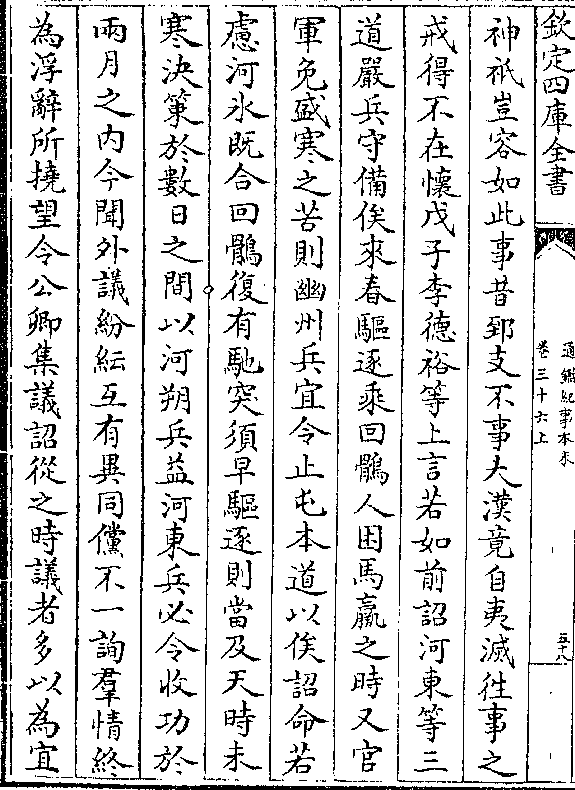 欽定四庫全書
通鑑紀事本末
卷三十六上
五十八
神祇豈容如此事昔郅支不事大漢竟自夷滅往事之
戒得不在懷戊子李德裕等上言若如前詔河東等三
道嚴兵守備俟來春驅逐乘回鶻人困馬羸之時又官
軍免盛寒之苦則幽州兵宜令止屯本道以俟詔命若
慮河氷既合回鶻復有馳突須早驅逐則當及天時未
寒決策於數日之間以河朔兵益河東兵必令收功於
兩月之內今聞外議紛紜互有異同儻不一詢羣情終
為浮辭所撓望令公卿集議詔從之時議者多以為宜